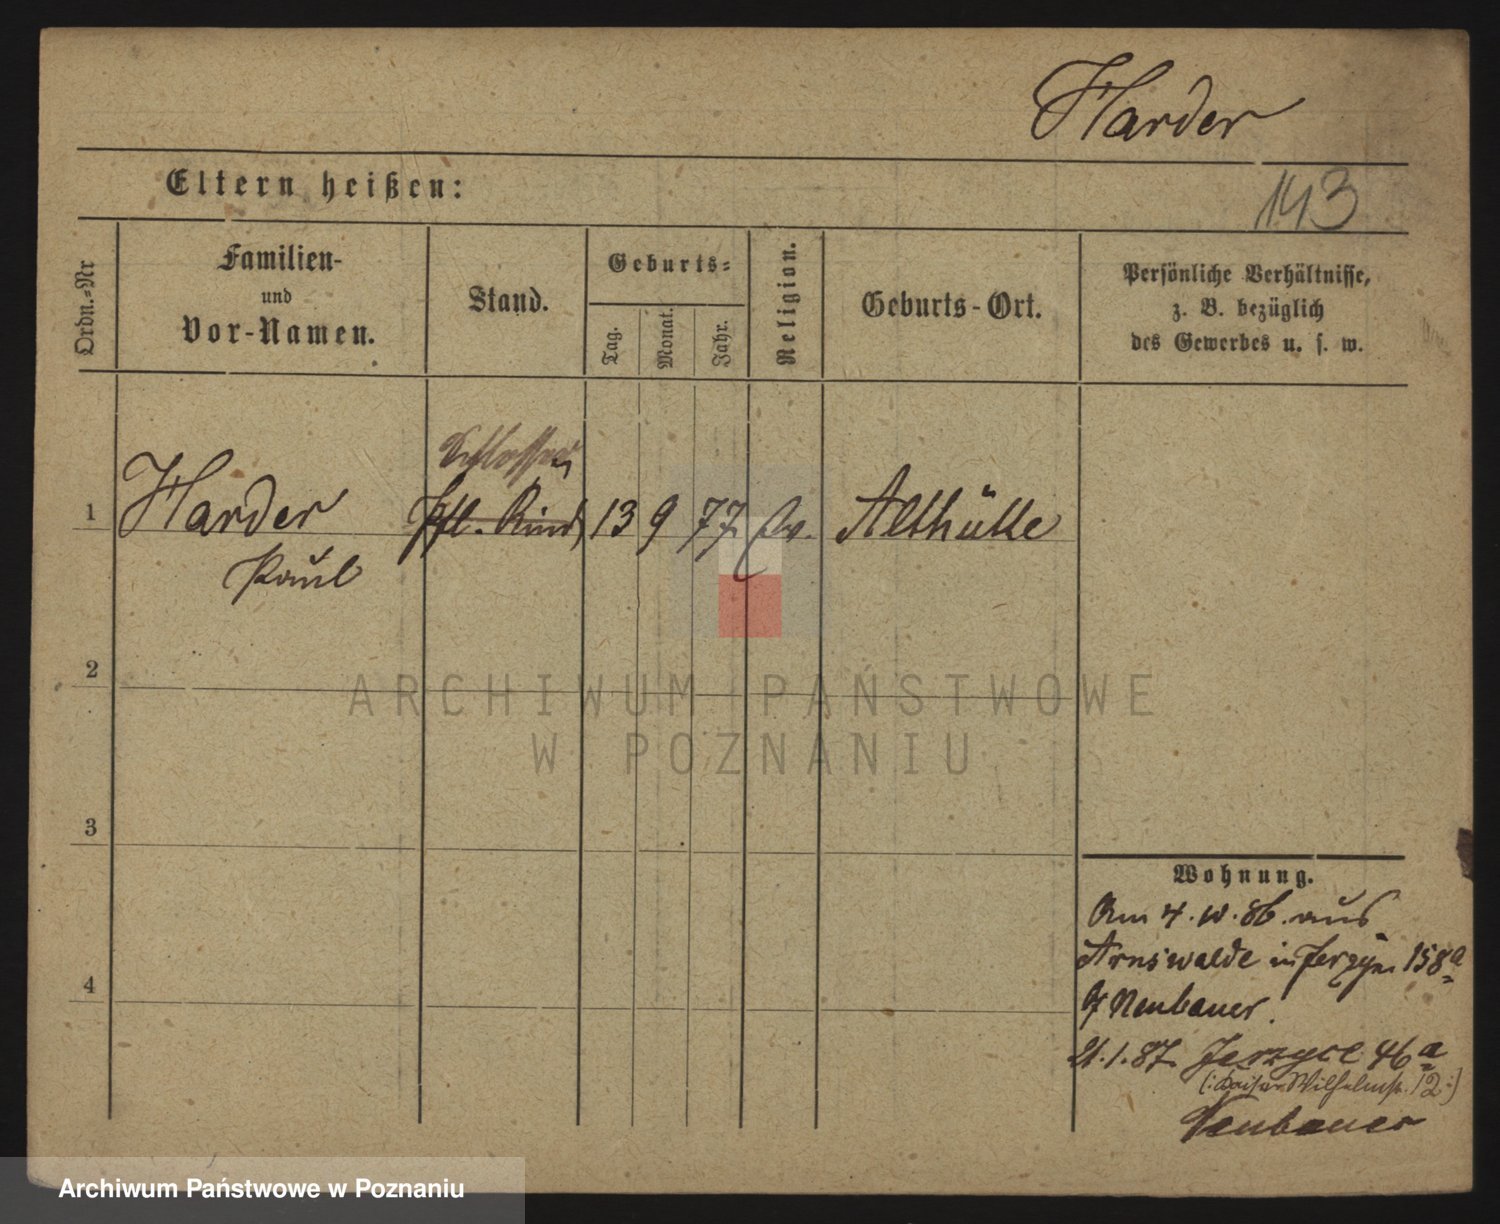 Harder
143
Eltern heißen:
Ordn.-Nr
Familien-
und
Vor-Namen.
Stand.
Geburts-
Tag.
Monat.
Jahr.
Religion.
Geburts-Ort.
Persönliche Verhältnisse,
z. B. bezüglich
des Gewerbes u. s. w.
Schlosser
1 Harder Pfl. Kind 13 9 77 Ev. Althütte
Paul
2
3
4
Wohnung.
Am 4. 10. 86. aus
Arnswalde in Jerzyce 158a
Neubauer.
21.1.87. Jerzyce 46a
(: Kaiser Wilhelmstr. 12 :)
Neubauer
ARCHIWUM PAŃSTWOWE
W POZNANIU
Archiwum Państwowe w Poznaniu